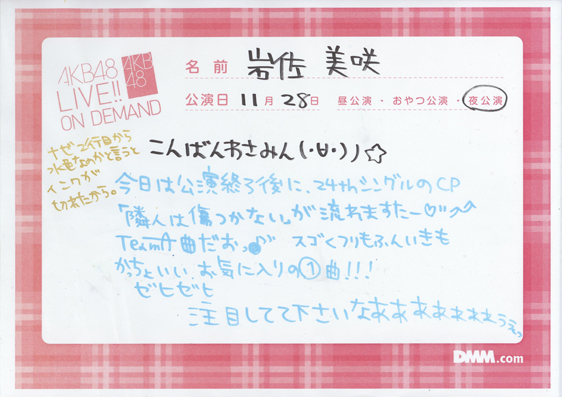 AKB48
LIVE!!
ON DEMAND
AKB
48
名前 岩佐 美咲
公演日 11月 28日 昼公演・おやつ公演・夜公演
ナゼ2行目から
水色なのかと言うと
インクが
切れたから。
こんばんわさみん(・∀・)ノ☆
今日は公演終了後に、24thシングルのCP
「隣人は傷つかない」が流れますたー♡
TeamA曲だおっ スゴくフリもふんいきも
かっちょいい、お気に入りの①曲!!!
ゼヒゼヒ
注目してて下さいなあああああああぅぇっ
DMM.com